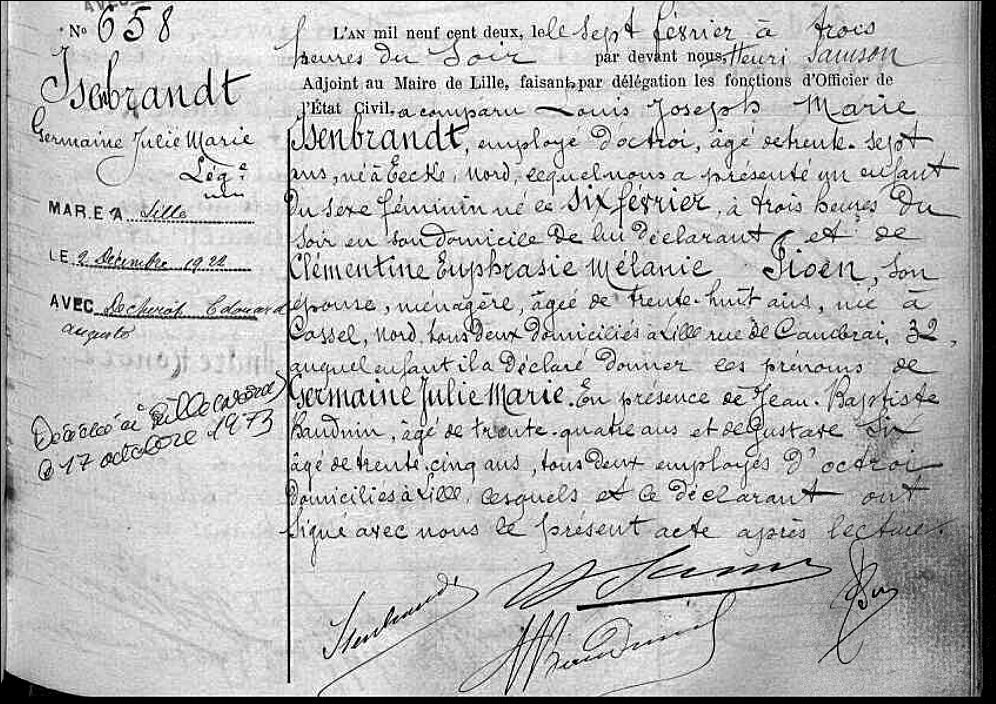 N° 658
Isenbrandt
Germaine Julie Marie
Lég.e
MAR.E A Lille
LE 2 Décembre 1922
AVEC Edouard
Auguste
Décédée à Lille
le 17 octobre 1973
L'AN mil neuf cent deux, le le sept février à trois
heures du Soir par devant nous, Henri Samson
Adjoint au Maire de Lille, faisant par délégation les fonctions d'Officier de
l'État Civil, a comparu Louis Joseph Marie
Isenbrandt, employé d'octroi, âgé de trente-sept
ans, né à Eecke, Nord, lequel nous a présenté un enfant
du sexe féminin né le six février, à trois heures du
soir en son domicile de lui déclarant et de
Clémentine Euphrasie Mélanie Sioën, son
épouse, ménagère, âgée de trente-huit ans, née à
Cassel, Nord, tous deux domiciliés à Lille rue de Cambrai, 32,
auquel enfant il a déclaré donner les prénoms de
Germaine Julie Marie. En présence de Jean-Baptiste
Bauduin, âgé de trente-quatre ans et de Gustave
âgé de trente-cinq ans, tous deux employés d'octroi
domiciliés à Lille, lesquels et le déclarant ont
signé avec nous le présent acte après lecture.
Isenbrandt
H Samson
Bauduin